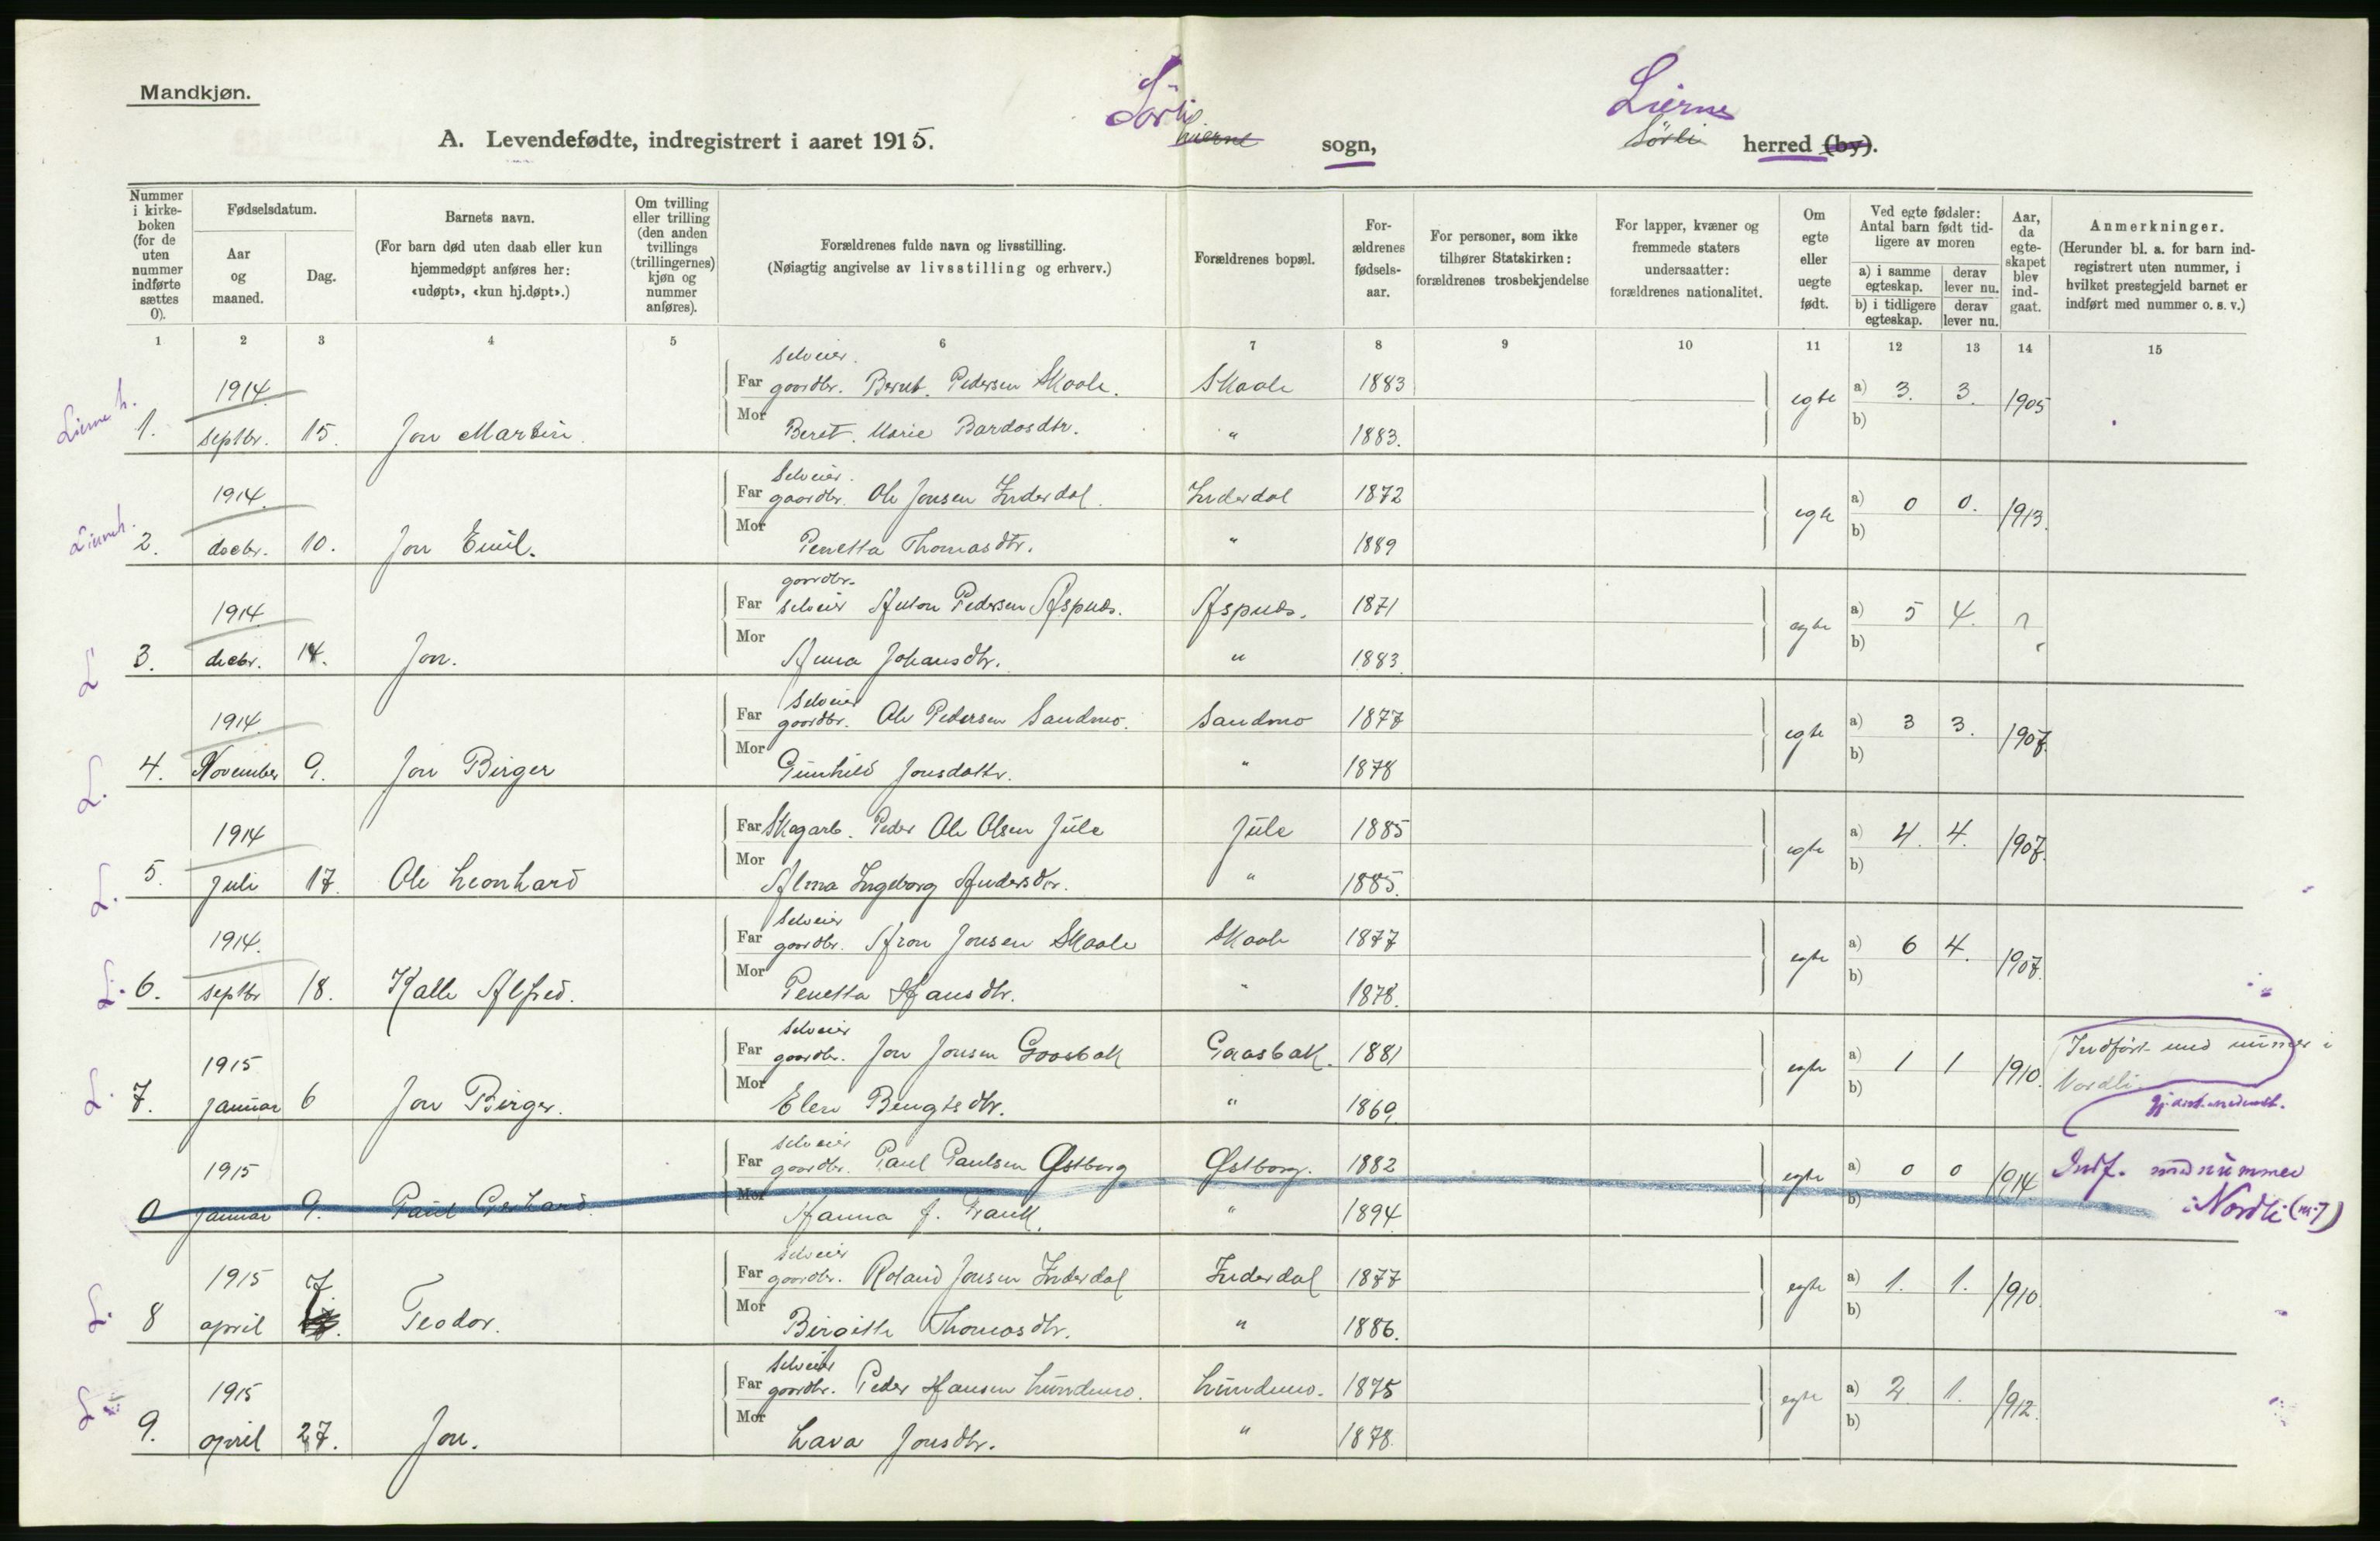 Mandkjøn.
A. Levendefødte, indregistrert i aaret 1915. Sörli Lierne sogn, Lierne Sörli herred (by).
Nummer i kirkeboken (for de uten nummer indførte sættes 0).
Fødselsdatum.
Aar og maaned.
Dag.
Barnets navn.
(For barn død uten daab eller kun hjemmedøpt anføres her: «udøpt», «kun hj.døpt».)
Om tvilling eller trilling (den anden tvillings (trillingernes) kjøn og nummer anføres).
Forældrenes fulde navn og livsstilling.
(Nøiagtig angivelse av livsstilling og erhverv.)
Forældrenes bopæl.
Forældrenes fødselsaar.
For personer, som ikke tilhører Statskirken: forældrenes trosbekjendelse
For lapper, kvæner og fremmede staters undersaatter: forældrenes nationalitet.
Om egte eller uegte født.
Ved egte fødsler: Antal barn født tidligere av moren
a) i samme egteskap. derav lever nu.
b) i tidligere egteskap. derav lever nu.
Aar, da egteskapet blev indgaat.
Anmerkninger.
(Herunder bl. a. for barn indregistrert uten nummer, i hvilket prestegjeld barnet er indført med nummer o. s. v.)
1 2 3 4 5 6 7 8 9 10 11 12 13 14 15
Lierne h.
1. 1914 septbr. 15. Jon Martin.
selveier.
Far gaardbr. Bernt. Pedersen Skaale. Skaale 1883 egte a) 3. 3. 1905
Mor Beret. Marie Bardosdtr. " 1883. b)
2. 1914. decbr. 10. Jon Emil.
Selveier.
Far gaardbr. Ole Jonsen Inderdal. Inderdal 1872 egte a) 0 0. 1913.
Mor Penetta Thomasdtr. " 1889 b)
L 3. 1914 decbr. 14. Jon.
gaardbr.
Far selveier Anton Pedersen Aspnes. Aspnes. 1871 egte a) 5 4. ?
Mor Anna Johansdtr. " 1883 b)
L. 4. 1914. November 9. Jon Birger
Selveier
Far gaardbr. Ole Pedersen Sandmo. Sandmo 1877 egte a) 3 3. 1907.
Mor Gunhild Jonsdattr. " 1878 b)
L. 5. 1914 juli 17. Ole Leonhard
Far Skogarb. Peder Ole Olsen Jule Jule 1885 egte a) 4. 4. 1907.
Mor Alma Ingeborg Andersdtr. " 1885. b)
L. 6. 1914. septbr 18. Kalle Alfred.
Selveier
Far gaardbr. Aron Jonsen Skaale Skaale 1877 egte a) 6 4. 1907.
Mor Penetta Hansdtr. " 1878. b)
L. 7. 1915 januar 6 Jon Birger.
selveier
Far gaardbr. Jon Jonsen Gaasbak Gaasbak. 1881 egte a) 1 1 1910. Indført med numer i
Mor Elen Bengtsdtr. " 1869. b) Nordli
0 1915 januar 9. Paul Gerhard.
selveier
Far gaardbr. Paul Paulsen Østborg Østborg. 1882 egte a) 0 0 1914 Indf. med nummer
Mor Hanna J. Frank. " 1894 b) i Nordli (nr 7)
L. 8 1915 april 7. Teodor.
selveier
Far gaardbr. Roland Jonsen Inderdal Inderdal 1877 egte a) 1. 1. 1910
Mor Birgitte Thomasdtr. " 1886. b)
L 9. 1915 april 27. Jon.
Selveier
Far gaardbr. Peder Hansen Lundemo. Lundemo. 1875 egte a) 2 1. 1912.
Mor Lava Jonsdtr. " 1878. b)